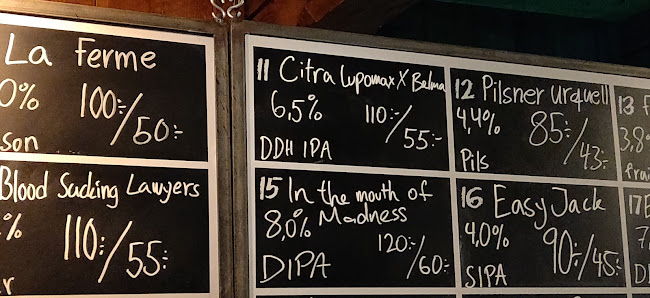 La Ferme
0%
100:-/50:-
son
Blood Sucking Lawyers
%
110:-/55:-
r
11 Citra Lupomax X Belma
6,5%
110:-/55:-
DDH IPA
12 Pilsner Urquell
4,4%
85:-/43:-
Pils
13 F
3,8%
Frai
15 In the mouth of
Madness
8,0%
120:-/60:-
DIPA
16 Easy Jack
4,0%
90:-/45:-
SIPA
17
7,
DI